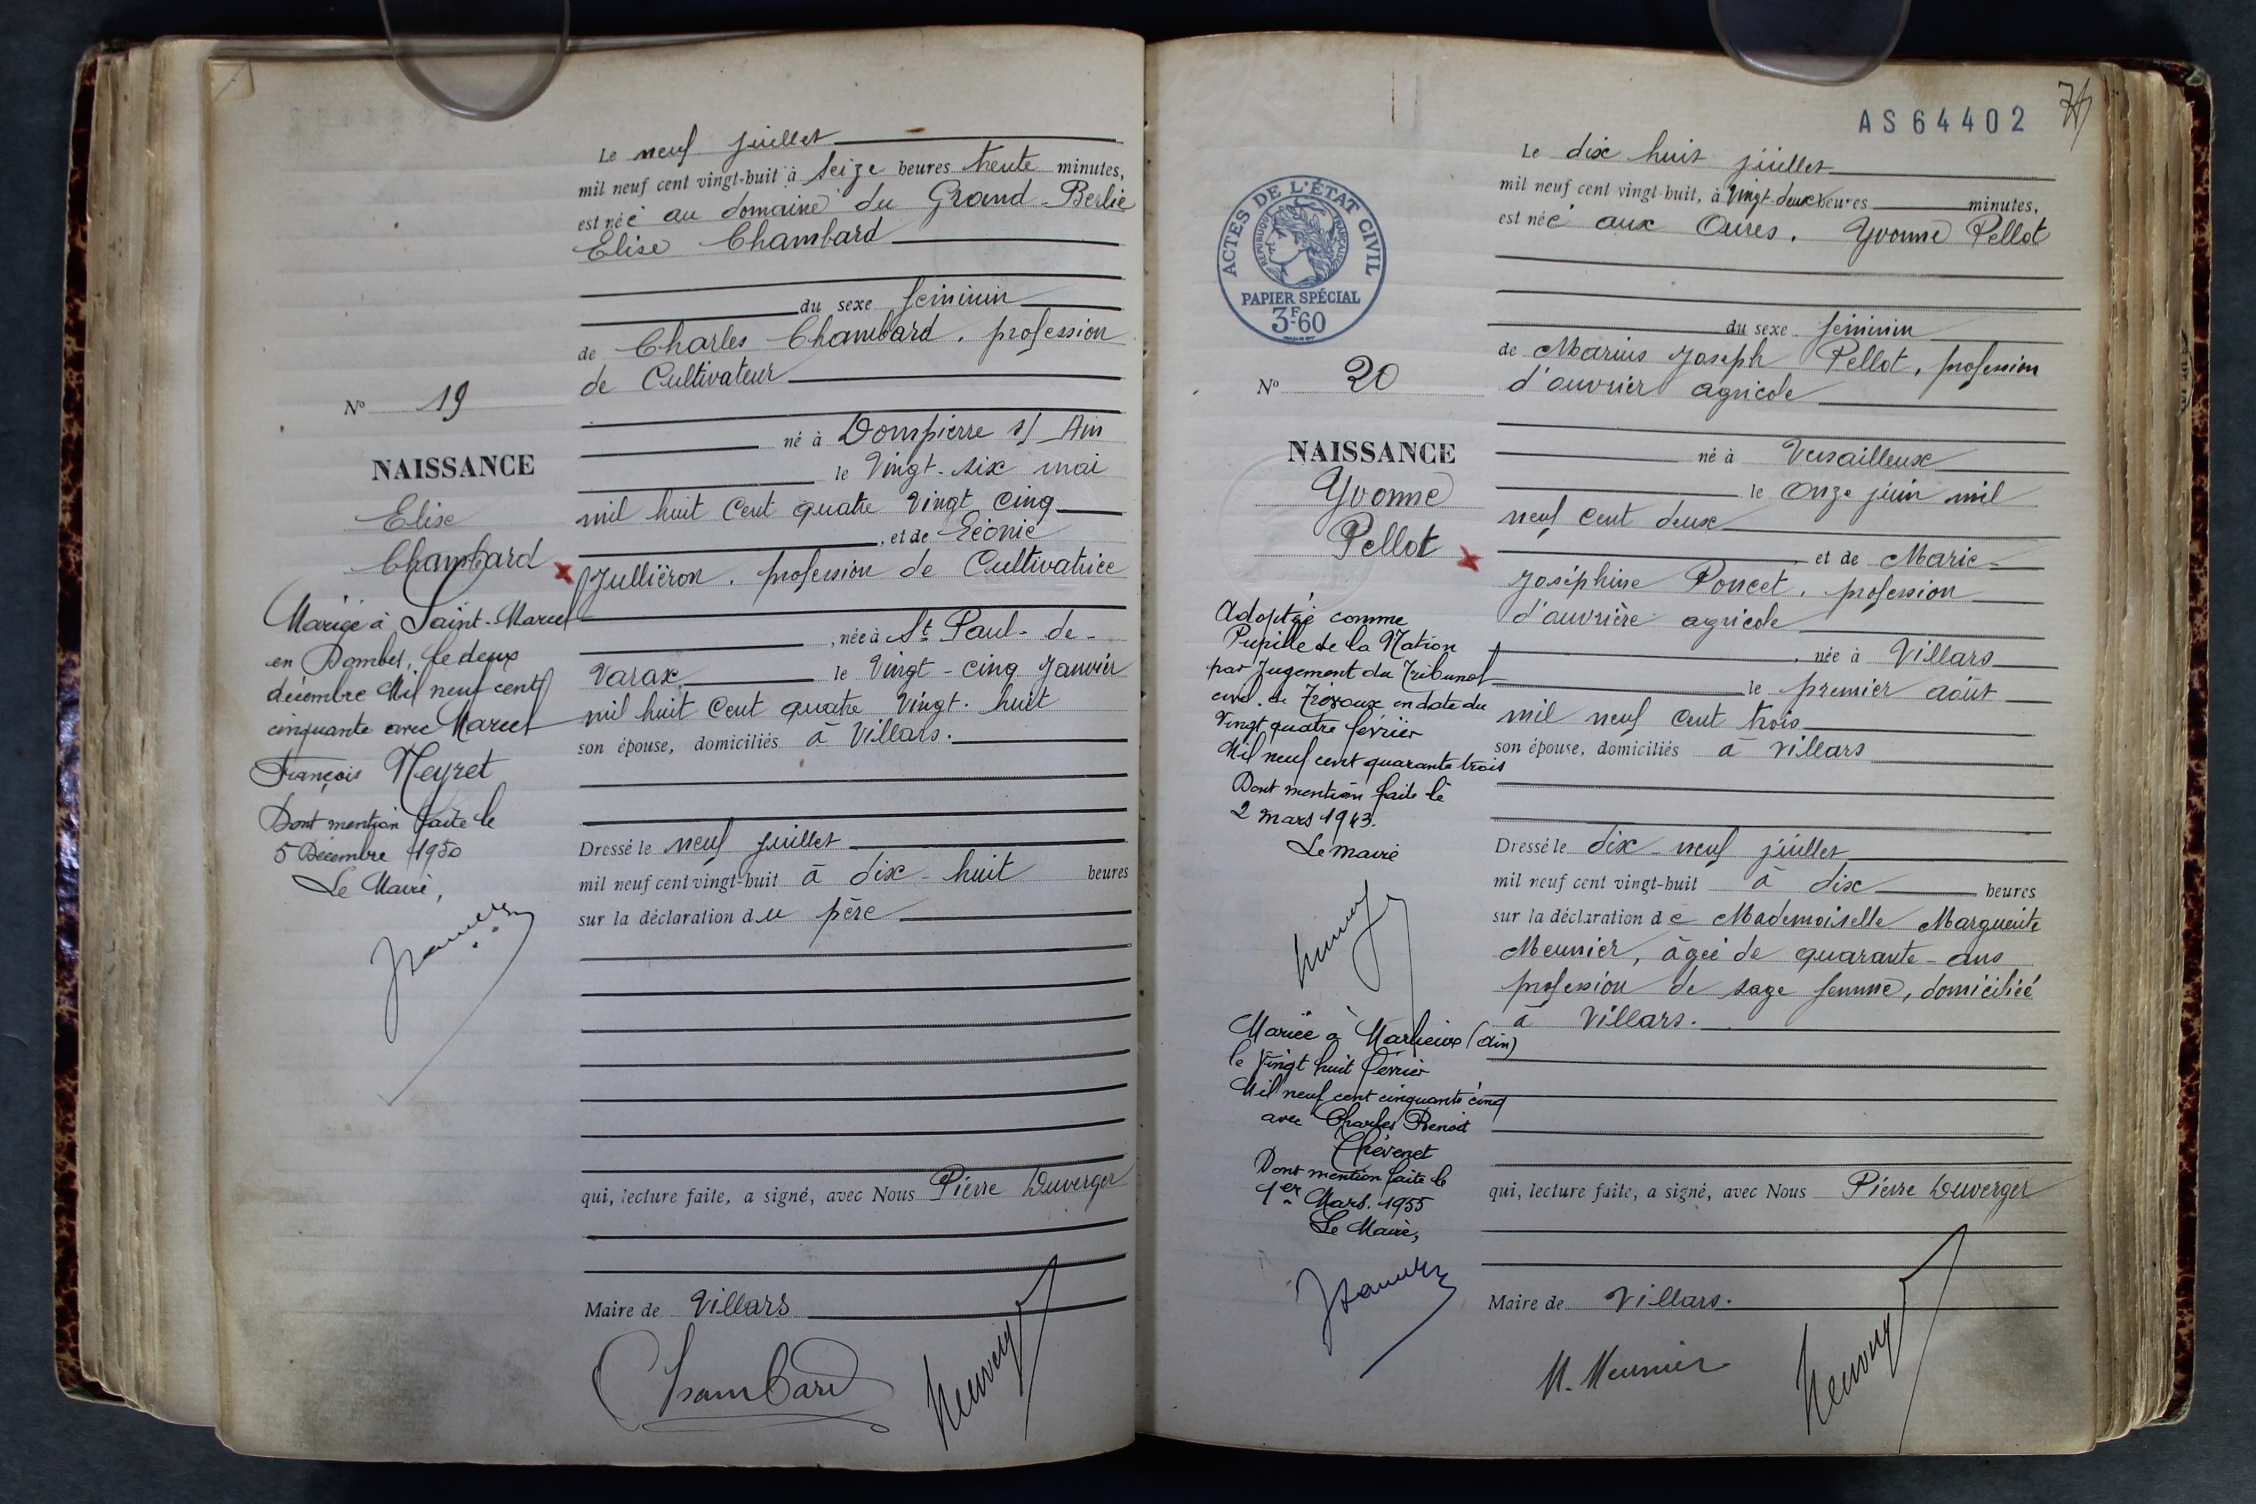 Le neuf juillet
mil neuf cent vingt-huit à seize heures trente minutes,
est née au domaine du Grand Berlie
Elise Chambard
du sexe féminin
de Charles Chambard, profession
de Cultivateur
né à Dompierre s/ Ain
le vingt-six mai
mil huit cent quatre vingt cinq
, et de Léonie
Jullièron, profession de Cultivatrice
, née à St Paul-de-
Varax le vingt-cinq janvier
mil huit cent quatre vingt-huit
son épouse, domiciliés à Villars.
Dressé le neuf juillet
mil neuf cent vingt-huit à dix-huit heures
sur la déclaration du père
qui, lecture faite, a signé, avec Nous Pierre Duverger
Maire de Villars
Chambard
Nº 19
NAISSANCE
Elise
Chambard
Mariée à Saint-Marcel
en Dombes, le deux
décembre Mil neuf cent
cinquante avec Marcel
François Neyret
Dont mention faite le
5 Décembre 1950
Le Maire,
AS64402
Le dix huit juillet
mil neuf cent vingt-huit, à vingt-deux heures minutes,
est née aux Oures, Yvonne Pellot
du sexe féminin
de Marius Joseph Pellot, profession
d'ouvrier agricole
né à Versailleux
le onze juin mil
neuf cent deux
et de Marie-
Joséphine Poncet, profession
d'ouvrière agricole
, née à Villars
le premier août
mil neuf cent trois
son épouse, domiciliés à Villars
Dressé le dix-neuf juillet
mil neuf cent vingt-huit à dix heures
sur la déclaration de Mademoiselle Marguerite
Meunier, âgée de quarante-ans
profession de sage femme, domiciliée
à Villars.
qui, lecture faite, a signé, avec Nous Pierre Duverger
Maire de Villars.
M. Meunier
ACTES DE L'ÉTAT CIVIL
RÉPUBLIQUE FRANÇAISE
PAPIER SPÉCIAL
3F60
Nº 20
NAISSANCE
Yvonne
Pellot
Adoptée comme
Pupille de la Nation
par Jugement du Tribunal
civil de Trévoux en date du
Vingt quatre février
Mil neuf cent quarante trois
Dont mention faite le
2 mars 1943.
Le maire
Mariée à Marlieux (Ain)
le Vingt huit Février
Mil neuf cent cinquante cinq
avec Charles Benoit
Thévenet
Dont mention faite le
1er Mars 1955
Le Maire,